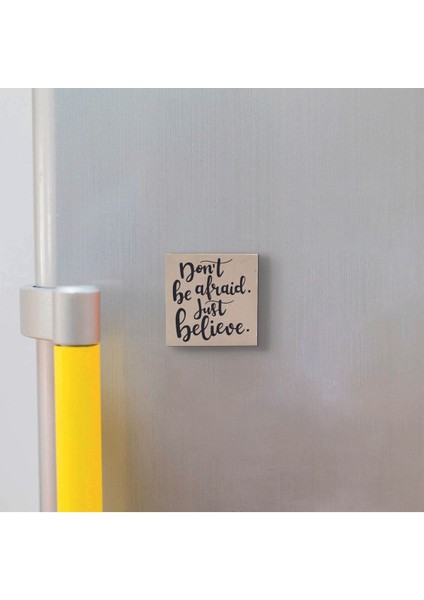 Don't
be afraid.
Just
believe.